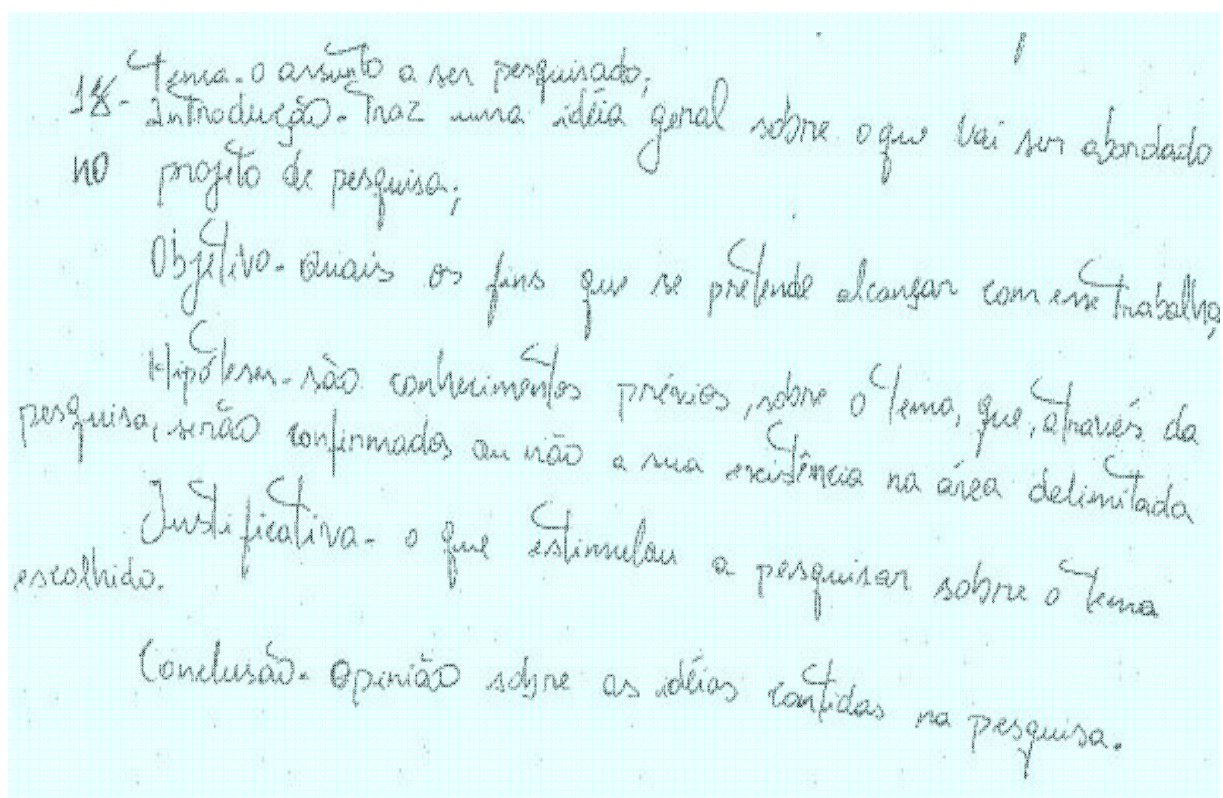 Tema- o assunto a ser pesquisado;
18- Introdução- Traz uma idéia geral sobre o que vai ser abordado
no projeto de pesquisa;
Objetivo- Quais os fins que se pretende alcançar com esse trabalho;
Hipóteses- são conhecimentos prévios, sobre o tema, que, através da
pesquisa, serão confirmados ou não a sua existência na área delimitada
Justificativa- o que estimulou a pesquisar sobre o tema
escolhido.
Conclusão- Opinião sobre as idéias contidas na pesquisa.